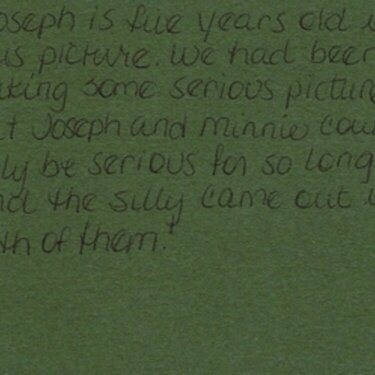 oseph is five years old i
is picture. We had been
king some serious pictur
t Joseph and Minnie cou
ly be serious for so long
nd the silly came out i
th of them!